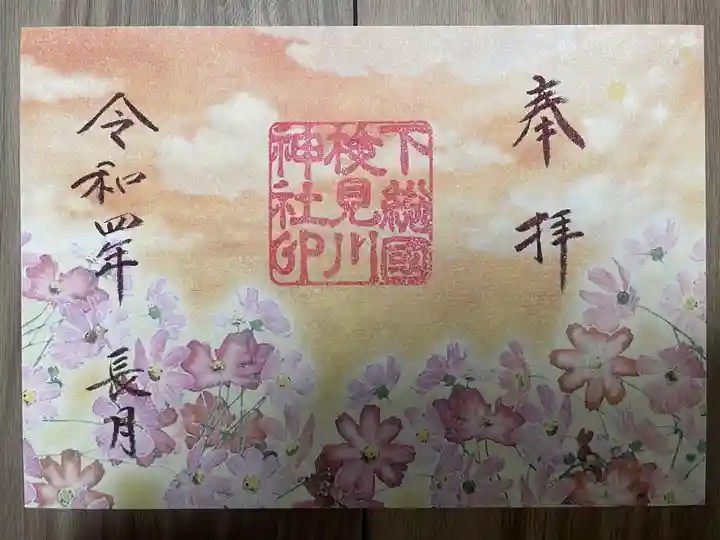 奉拝
下總國
検見川
神社印
令和四年 長月